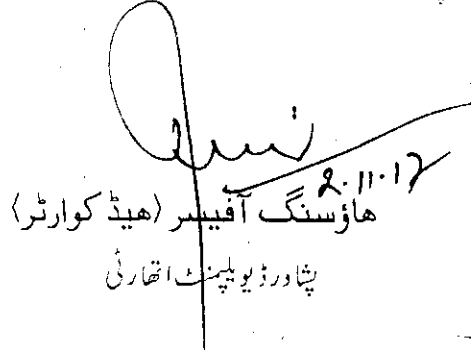 2.11.17
ھاؤسنگ آفیسر (ھیڈ کوارٹر)
پشاور ڈیویلپمنٹ اتھارٹی